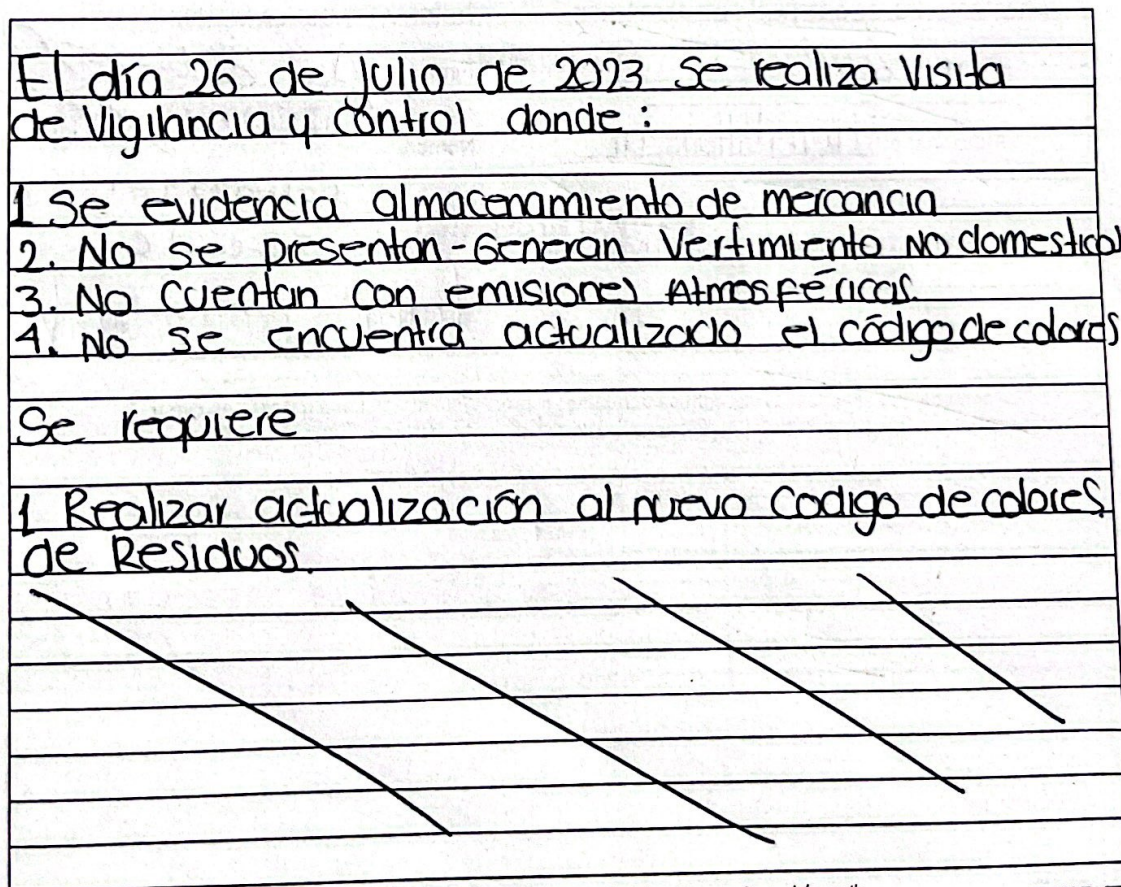 El día 26 de Julio de 2023 se realiza Visita
de Vigilancia y Control donde:
1 Se evidencia almacenamiento de mercancia
2. No se presentan-Generan Vertimiento No domestico
3. No cuentan con emisiones Atmosféricas.
4. No se encuentra actualizado el código de colores
Se requiere
1 Realizar actualización al nuevo Codigo de colores
de Residuos.